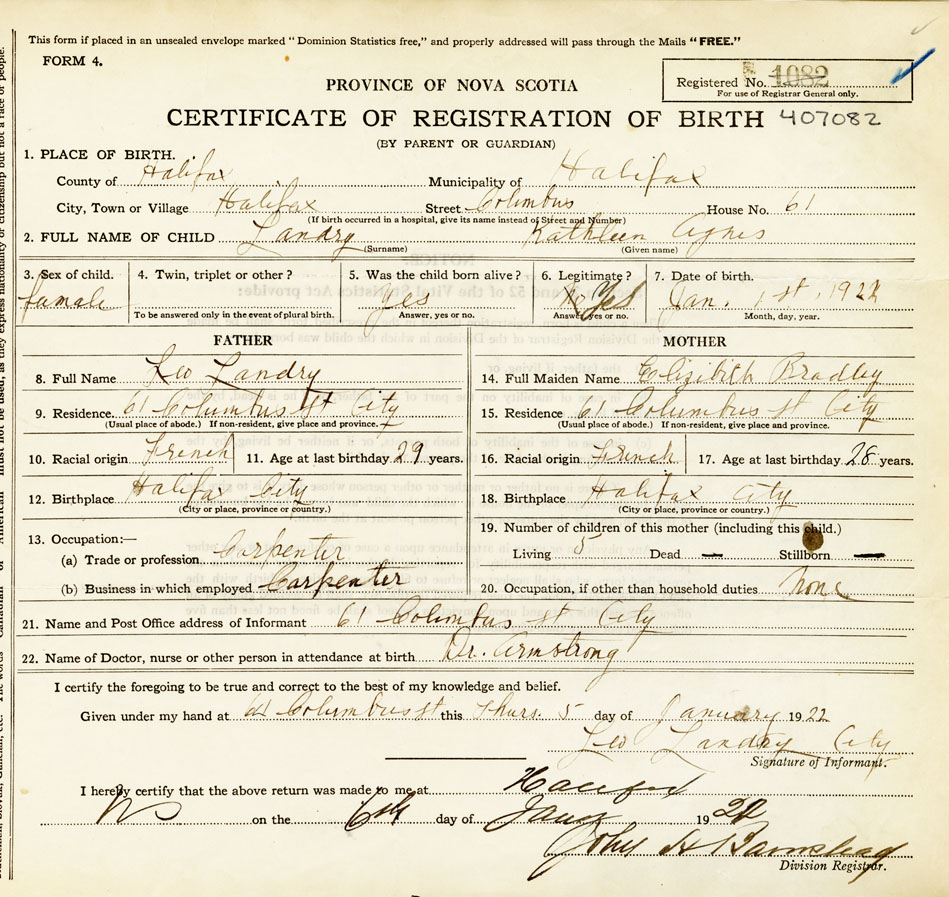 This form if placed in an unsealed envelope marked "Dominion Statistics free," and properly addressed will pass through the Mails "FREE."
FORM 4.
Registered No. 1082
For use of Registrar General only.
PROVINCE OF NOVA SCOTIA
CERTIFICATE OF REGISTRATION OF BIRTH 407082
(BY PARENT OR GUARDIAN)
1. PLACE OF BIRTH.
County of Halifax Municipality of Halifax
City, Town or Village Halifax Street Columbus House No. 61
(If birth occurred in a hospital, give its name instead of Street and Number)
2. FULL NAME OF CHILD Landry Kathleen Agnes
(Surname) (Given name)
3. Sex of child. 4. Twin, triplet or other? 5. Was the child born alive? 6. Legitimate? 7. Date of birth.
female Yes No Yes Jan. 1st, 1922
To be answered only in the event of plural birth. Answer, yes or no. Answer, yes or no. Month, day, year.
FATHER MOTHER
8. Full Name Leo Landry 14. Full Maiden Name Elizibith Bradley
9. Residence. 61 Columbus St City 15. Residence 61 Columbus St City
(Usual place of abode.) If non-resident, give place and province. (Usual place of abode.) If non-resident, give place and province.
10. Racial origin French 11. Age at last birthday 29 years. 16. Racial origin French 17. Age at last birthday 28 years.
12. Birthplace Halifax City 18. Birthplace Halifax City
(City or place, province or country.) (City or place, province or country.)
13. Occupation:— 19. Number of children of this mother (including this child.)
(a) Trade or profession Carpenter Living 5 Dead — Stillborn —
(b) Business in which employed Carpenter 20. Occupation, if other than household duties none
21. Name and Post Office address of Informant 61 Columbus St City
22. Name of Doctor, nurse or other person in attendance at birth Dr. Armstrong
I certify the foregoing to be true and correct to the best of my knowledge and belief.
Given under my hand at 61 Columbus St this Thurs. 5 day of January 1922
Leo Landry City
Signature of Informant.
I hereby certify that the above return was made to me at Halifax
NS on the 6th day of Jany 1922
John A Barnstead
Division Registrar.